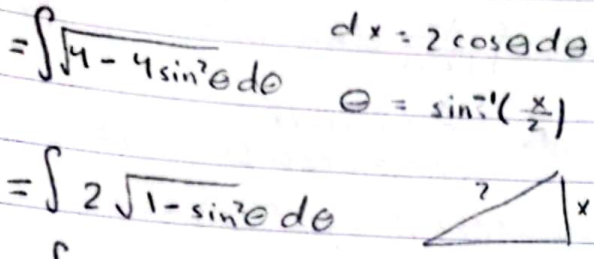 = ∫ √4 - 4sin²θ dθ
dx = 2 cosθ dθ
θ = sin⁻¹(x/2)
= ∫ 2 √1 - sin²θ dθ
2
x